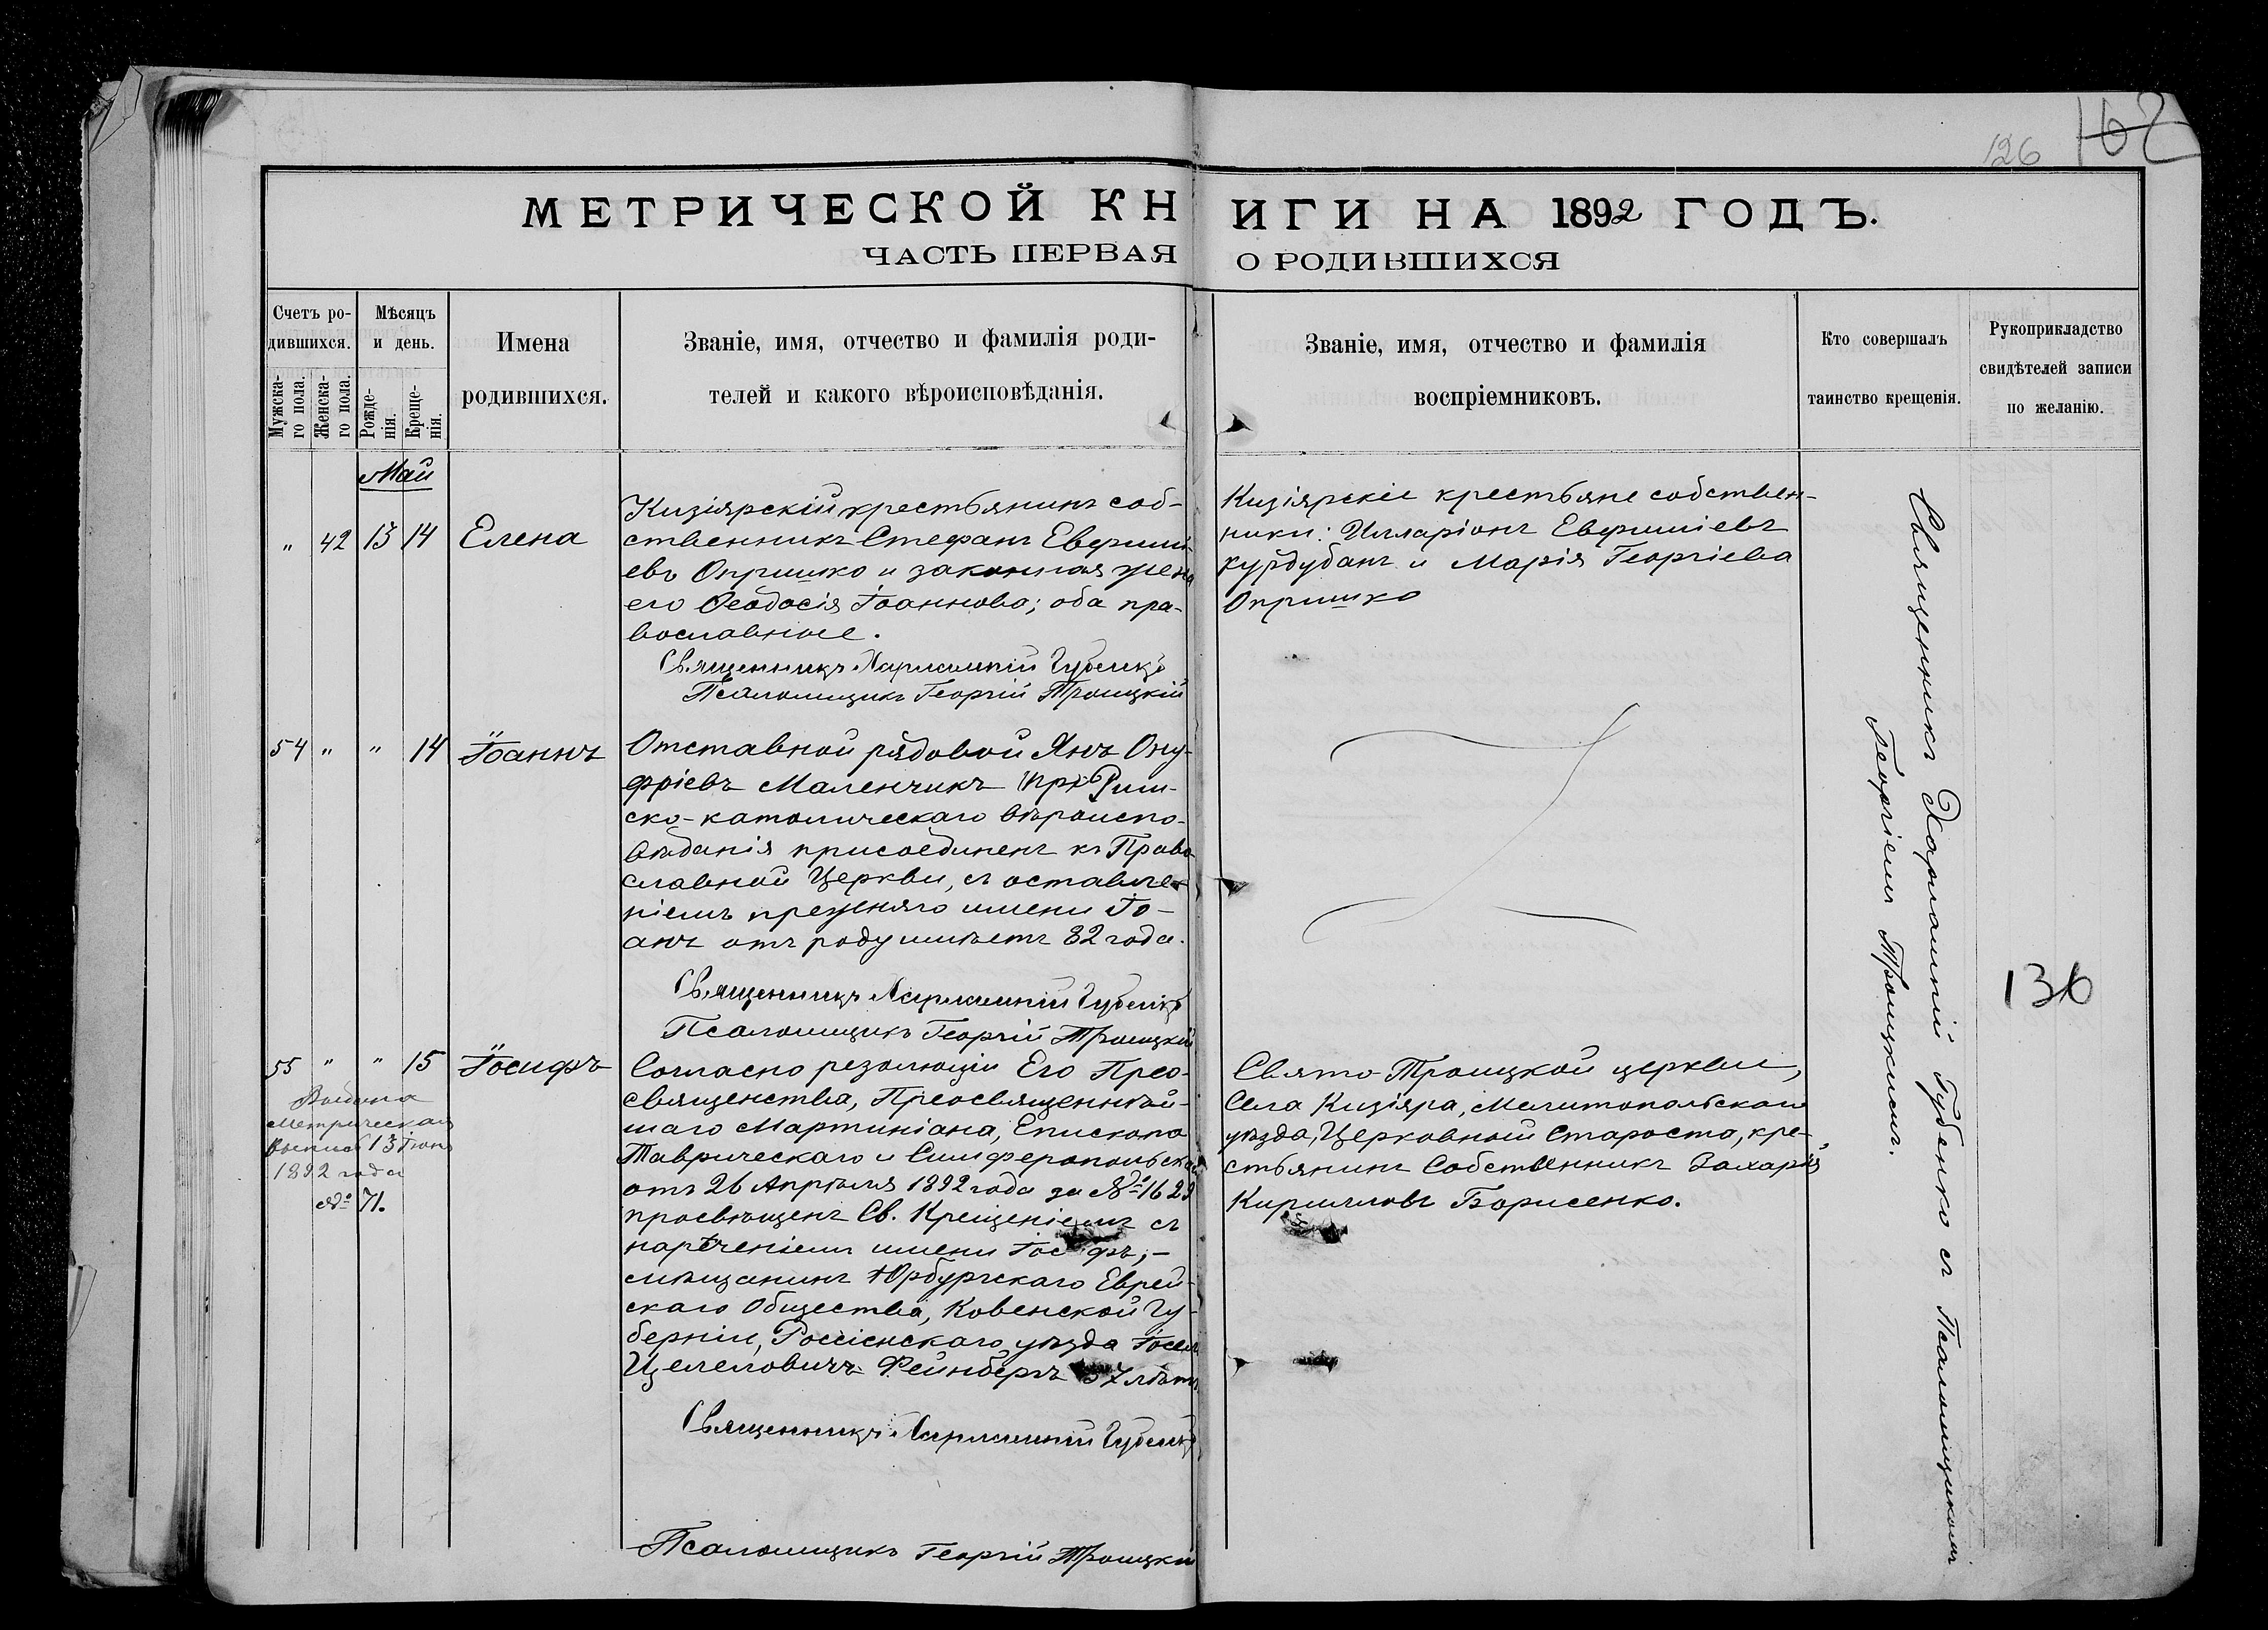 126
162
МЕТРИЧЕСКОЙ КНИГИ НА 1892 ГОДЪ.
ЧАСТЬ ПЕРВАЯ О РОДИВШИХСЯ
Счетъ ро-
дившихся.
Мужска-
го пола.
Женска-
го пола.
Мѣсяцъ
и день.
Рожде-
нія.
Креще-
нія.
Имена
родившихся.
Званіе, имя, отчество и фамилія роди-
телей и какого вѣроисповѣданія.
Званіе, имя, отчество и фамилія
воспріемниковъ.
Кто совершалъ
таинство крещенія.
Рукоприкладство
свидѣтелей записи
по желанію.
Май
" 42 13 14 Елена
Кизіярскій крестьянинъ соб-
ственникъ Стефанъ Евфими-
евъ Опришко и законная жена
его Ѳеодосія Іоаннова; оба пра-
вославные.
Священникъ Харлампій Губенко
Псаломщикъ Георгій Троицкій
Кизіярскіе крестьяне собствен-
ники: Илларіонъ Евфиміевъ
Курдубанъ и Марія Георгіева
Опришко
54 " " 14 Іоаннъ
Отставной рядовой Янъ Ону-
фріевъ Маленчикъ Рим-
ско-католическаго вѣроиспо-
вѣданія присоединенъ къ Право-
славной Церкви, съ оставле-
ніемъ прежняго имени Іо-
анъ отъ роду имѣетъ 32 года.
Священникъ Харлампій Губенко
Псаломщикъ Георгій Троицкій
55 " " 15 Іосифъ
Выдана
метрическая
выпись 13 Іюня
1892 года
№ 71.
Согласно резолюціи Его Прео-
священства, Преосвященнѣй-
шаго Мартиніана, Епископа
Таврическаго и Симферопольскаго
отъ 26 Апрѣля 1892 года за № 1629
просвѣщенъ Св. Крещеніемъ съ
нарѣченіемъ имени Іосифъ,-
мѣщанинъ Юрбургскаго Еврей-
скаго Общества, Ковенской Гу-
берніи, Россіенскаго уѣзда Іосель
Цемеловичъ Фейнбергъ 37 лѣтъ
Священникъ Харлампій Губенко
Псаломщикъ Георгій Троицкій
Свято-Троицкой церкви,
Села Кизіяра, Мелитопольскаго
уѣзда, Церковный Староста, кре-
стьянинъ Собственникъ Захарій
Кирилловъ Борисенко.
Священникъ Харлампій Губенко съ Псаломщикомъ
Георгіемъ Троицкимъ.
136